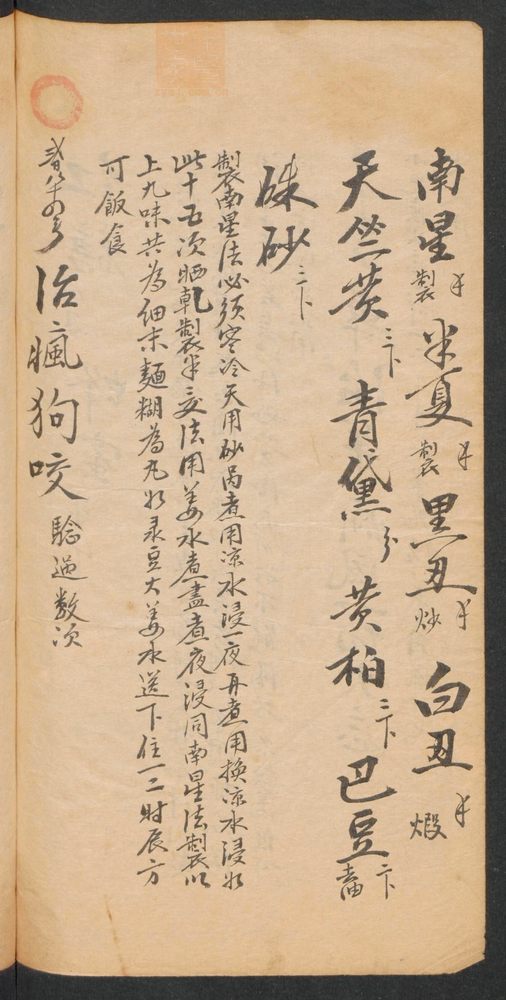 南星製半夏製黑丑炒白丑煅
天竺黄三卜青黛分黄柏三卜巴豆二卜
硃砂三卜
製南星法必须寒冷天用砂呙煮用凉水浸一夜再煮用换凉水浸如
此十五次晒乾製半夏法用姜水煮盡煮夜浸同南星法製以
上九味共為细末麵糊為丸如彔豆大姜水送下住一二时辰方
可飯食
治瘋狗咬騐過数次